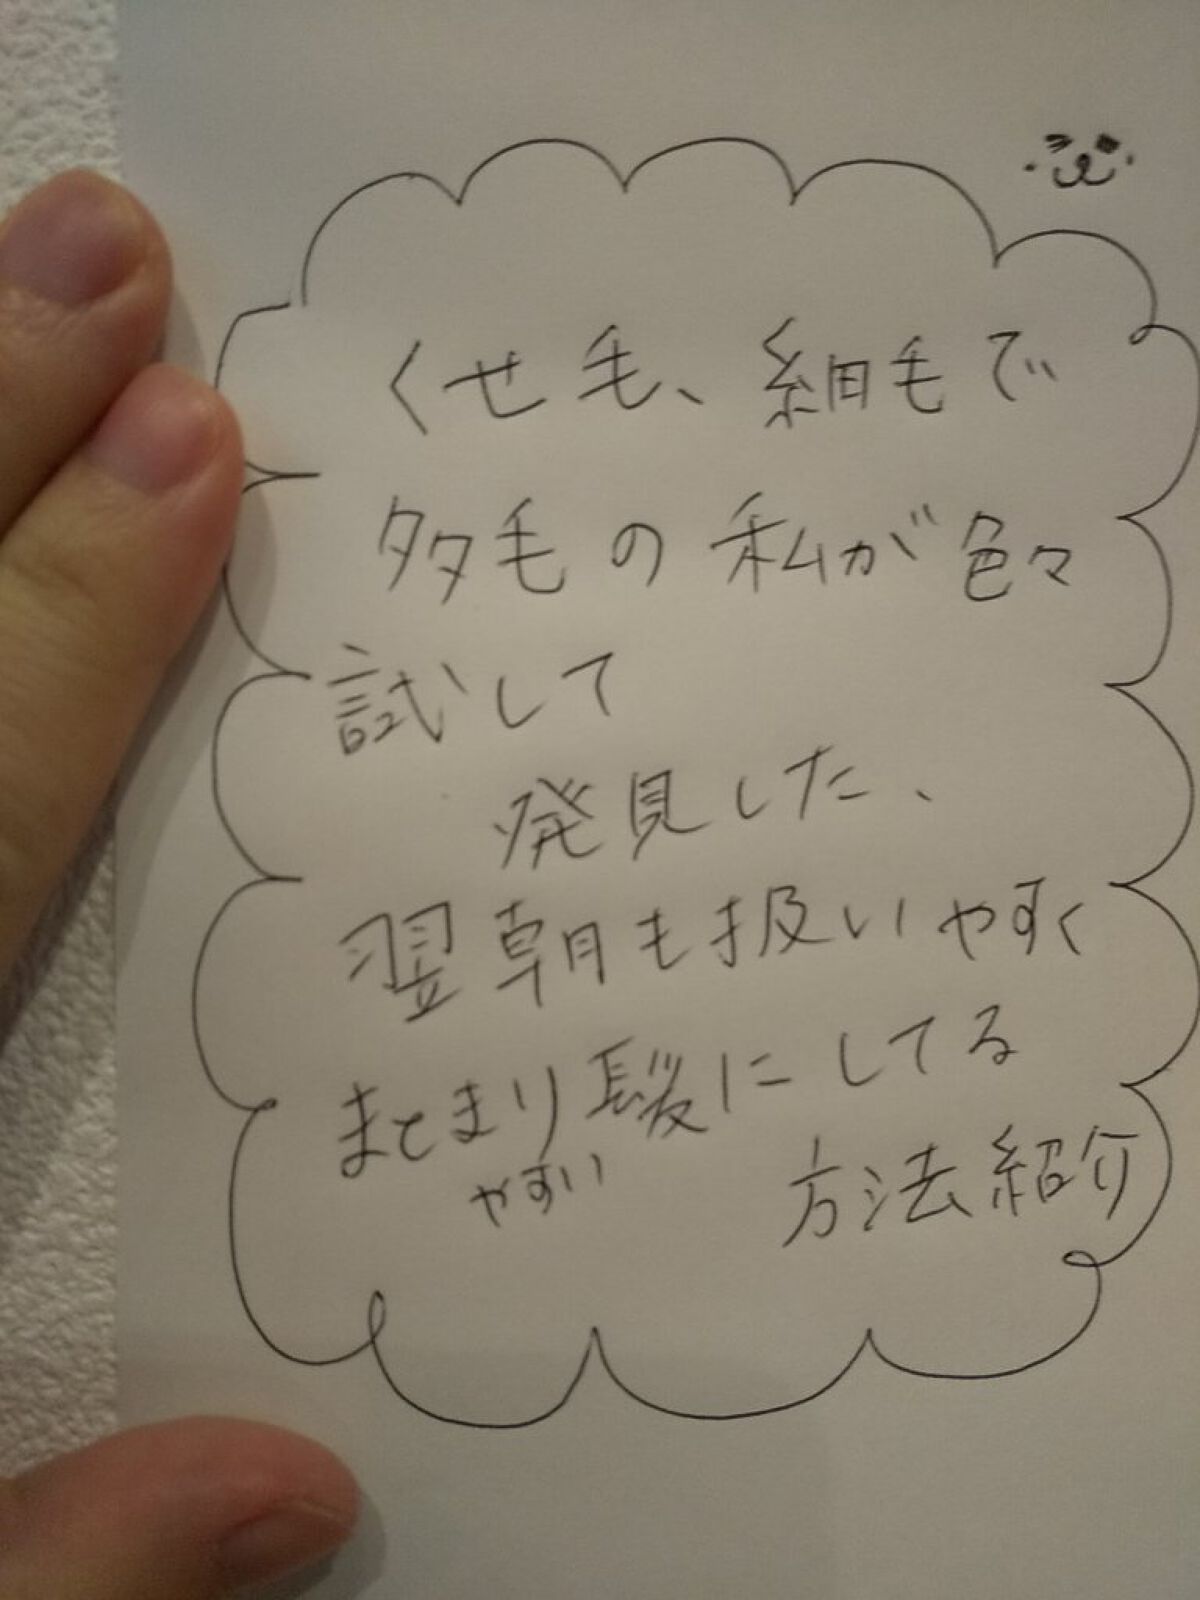 くせ毛、細毛で
多毛の私が色々
試して
発見した、
翌朝も扱いやすく
まとまり髪にしてる
やすい
方法紹介